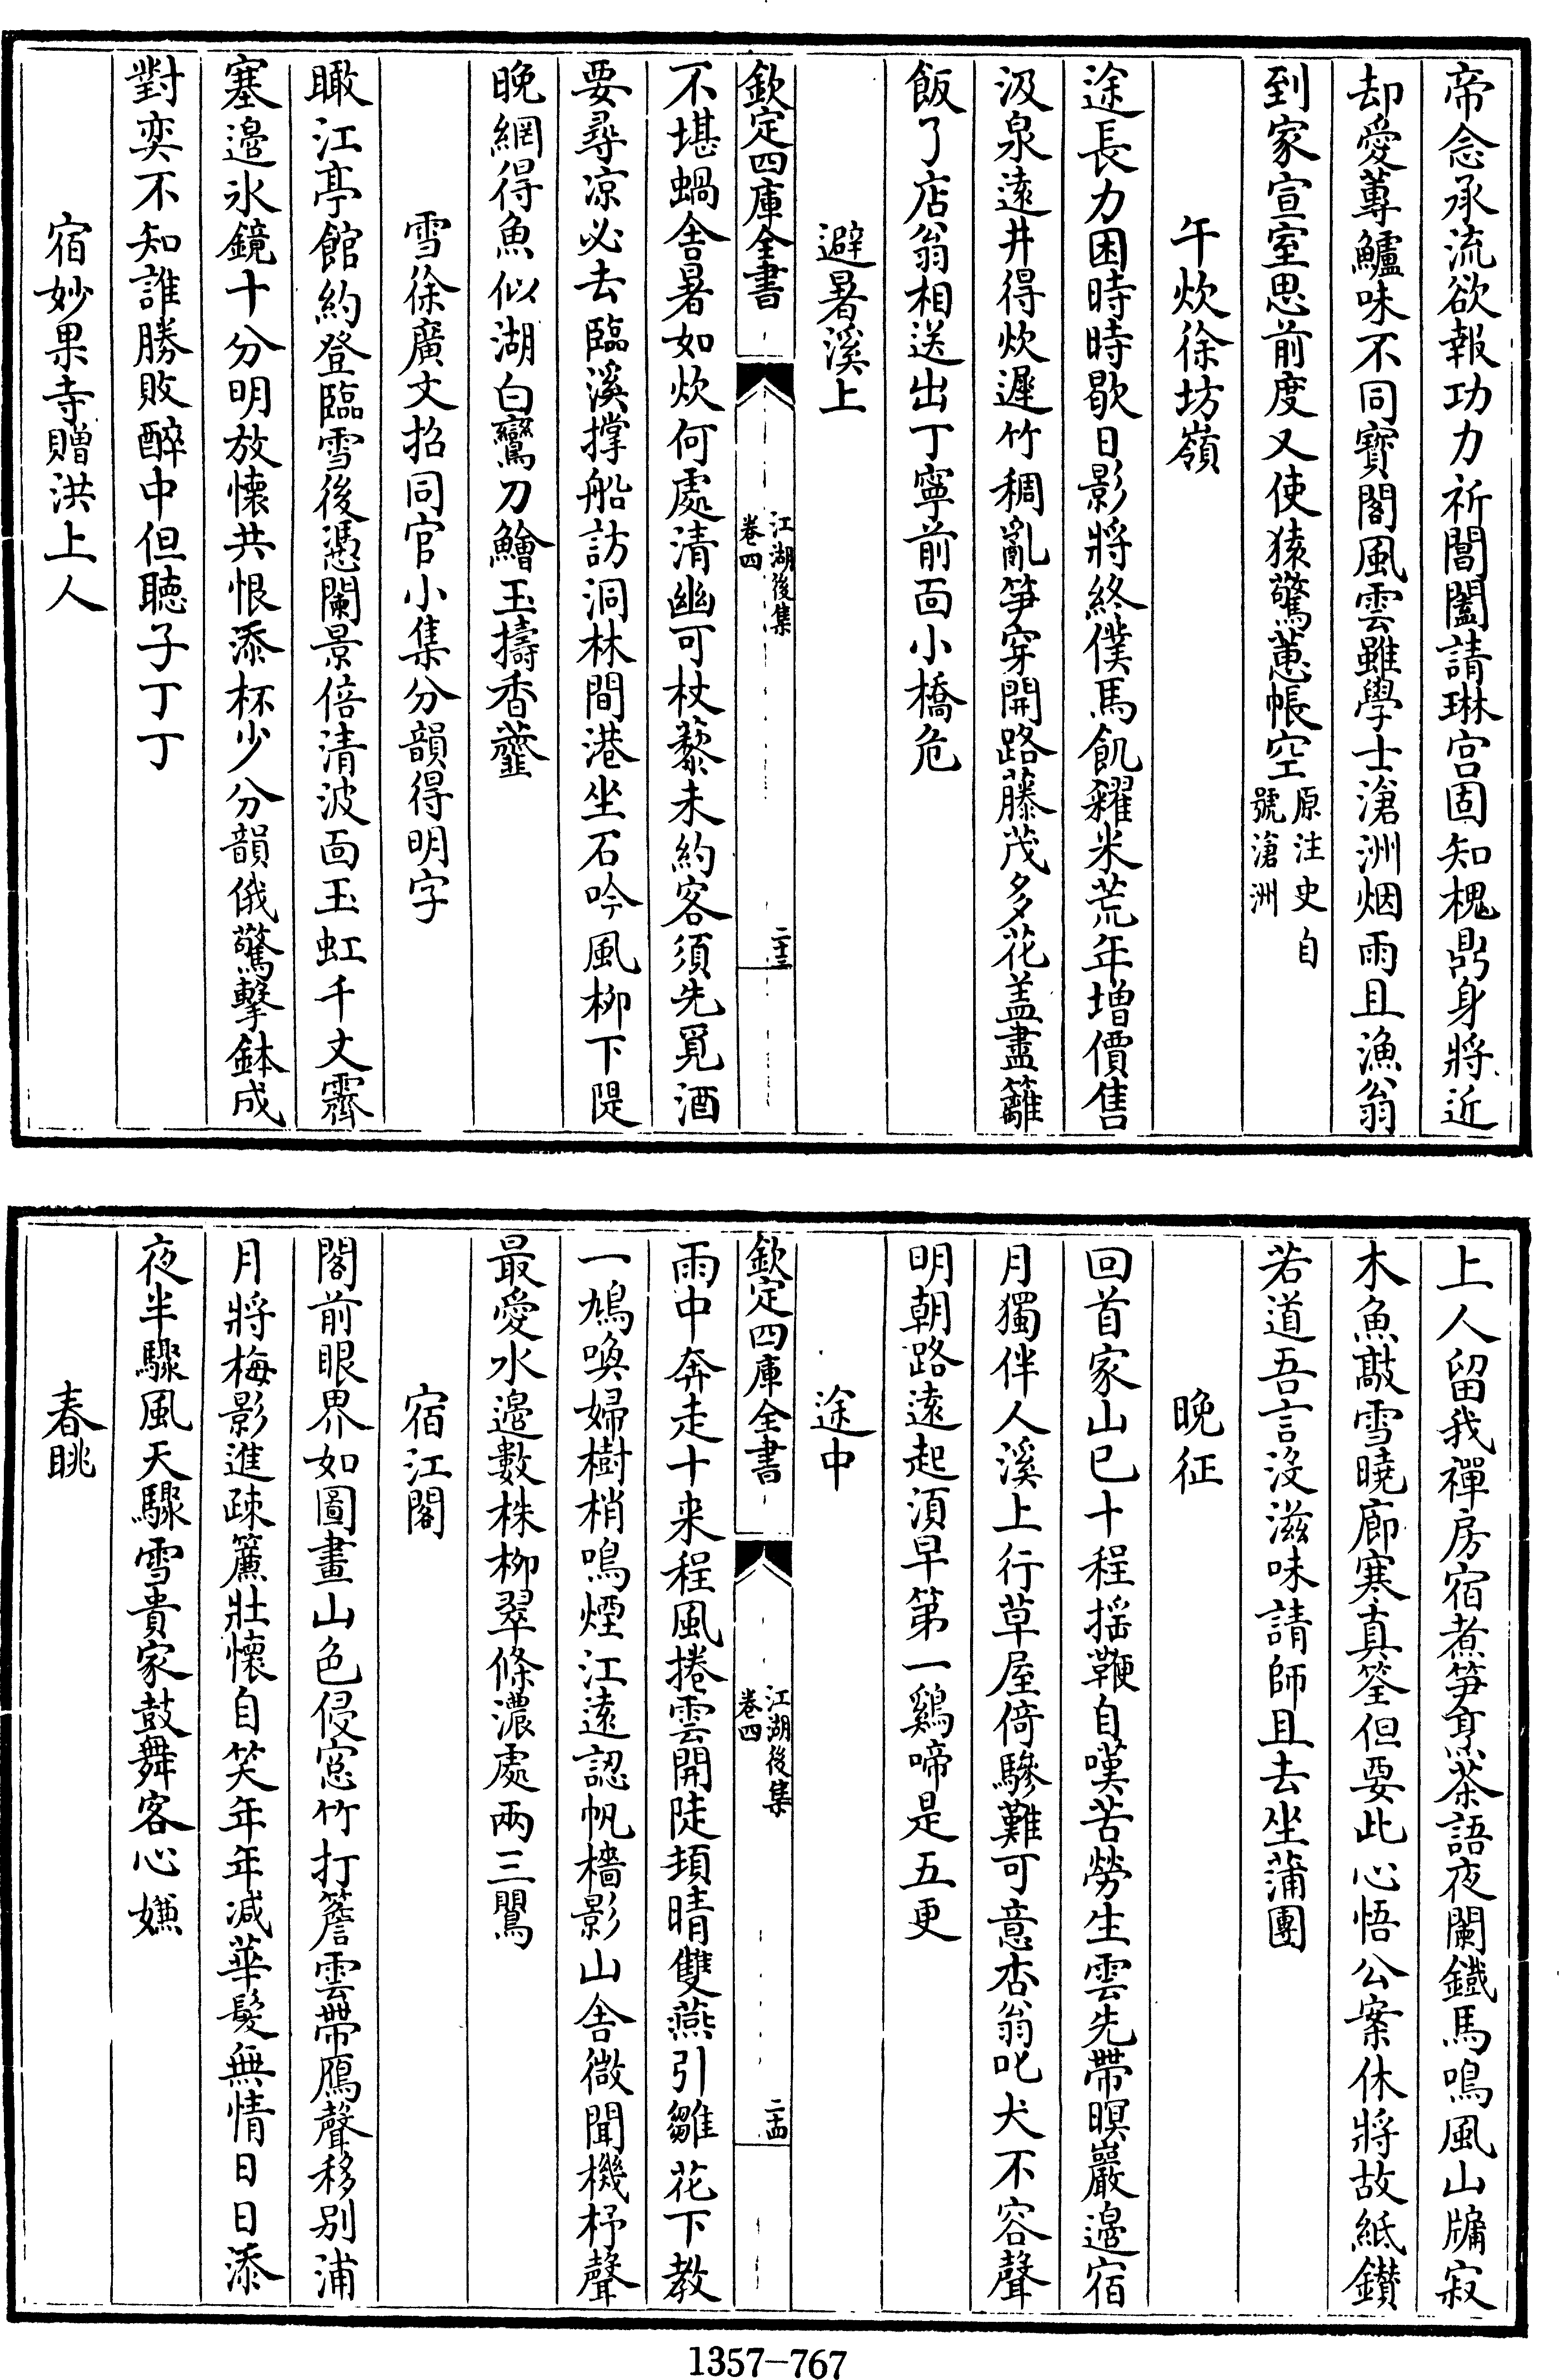 帝念承流欲報功力祈閶闔請琳宫固知槐鼎身將近
却愛蓴鱸味不同寳閣風雲雖學士滄洲烟雨且漁翁
到家宣室思前度又使猿驚蕙帳空原注史自號滄洲
午炊徐坊嶺
途長力困時時歇日影將終僕馬飢糴米荒年增價售
汲泉遠井得炊遲竹稠亂笋穿開路藤茂多花盖盡籬
飯了店翁相送出丁寧前面小橋危
避暑溪上
欽定四庫全書
江湖後集
卷四
二十三
不堪蝸舍暑如炊何處清幽可杖藜未約客須先覓酒
要尋凉必去臨溪撑船訪洞林間港坐石吟風柳下隄
晚網得魚似湖白鸞刀鱠玉擣香虀
雪徐廣文招同官小集分韻得明字
瞰江亭館約登臨雪後憑闌景倍清波面玉虹千丈霽
塞邉氷鏡十分明放懷共恨添杯少分韻俄驚擊鉢成
對奕不知誰勝敗醉中但聽子丁丁
宿妙果寺贈洪上人
上人留我禪房宿煮笋烹茶語夜闌鐵馬鳴風山牖寂
木魚敲雪曉廊寒真筌但要此心悟公案休將故紙鑚
若道吾言没滋味請師且去坐蒲團
晚征
回首家山已十程揺鞭自嘆苦勞生雲先帶暝巖邉宿
月獨伴人溪上行草屋倚驂難可意杏翁叱犬不容聲
明朝路遠起須早第一鷄啼是五更
途中
欽定四庫全書
江湖後集
卷四
二十四
雨中奔走十来程風捲雲開陡頓晴雙燕引雛花下教
一鳩喚婦樹梢鳴煙江遠認帆檣影山舍微聞機杼聲
最愛水邉數株柳翠條濃處兩三鶯
宿江閣
閣前眼界如圖畫山色侵窓竹打簷雲帶鴈聲移别浦
月將梅影進疎簾壯懷自笑年年减華髮無情日日添
夜半驟風天驟雪貴家鼓舞客心嫌
春眺
1357-767